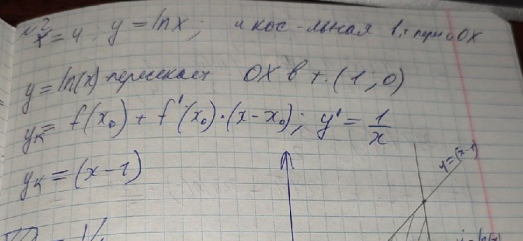 x=4 y=lnx; и кас-льная в т. пер. с OX
y=ln(x) пересекает OX в т. (1,0)
yк= f(x₀) + f'(x₀)·(x-x₀); y'=1/x
yк=(x-1)
y=(x-1)